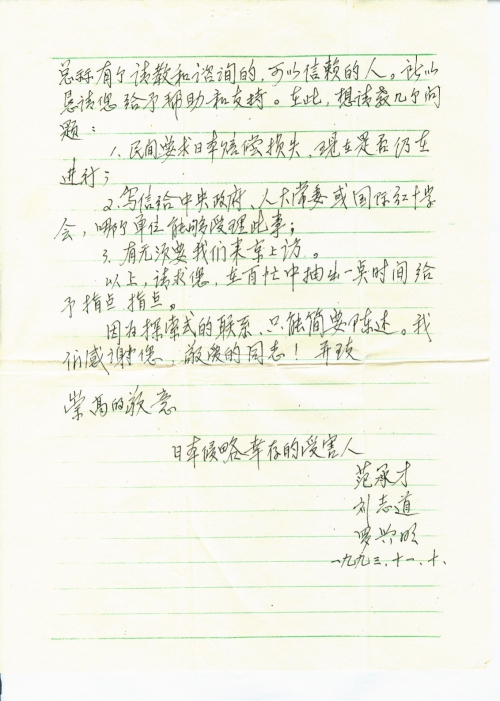 总称有个请教和谘询的，可以信赖的人。所以
恳请您给予帮助和支持。在此，想请教几个问
题：
1. 民间要求日本赔偿损失，现在是否仍在
进行；
2. 写信给中央政府、人大常委或国际红十字
会，哪个单位能够受理此事；
3. 有无须要我们来京上访。
以上，请求您，在百忙中抽出一点时间给
予指点指点。
因为探索式的联系，只能简要陈述。我
们感谢您，敬爱的同志！并致
崇高的敬意
日本侵略幸存的受害人
范承才
刘志道
罗兴明
一九九三.十一.十.